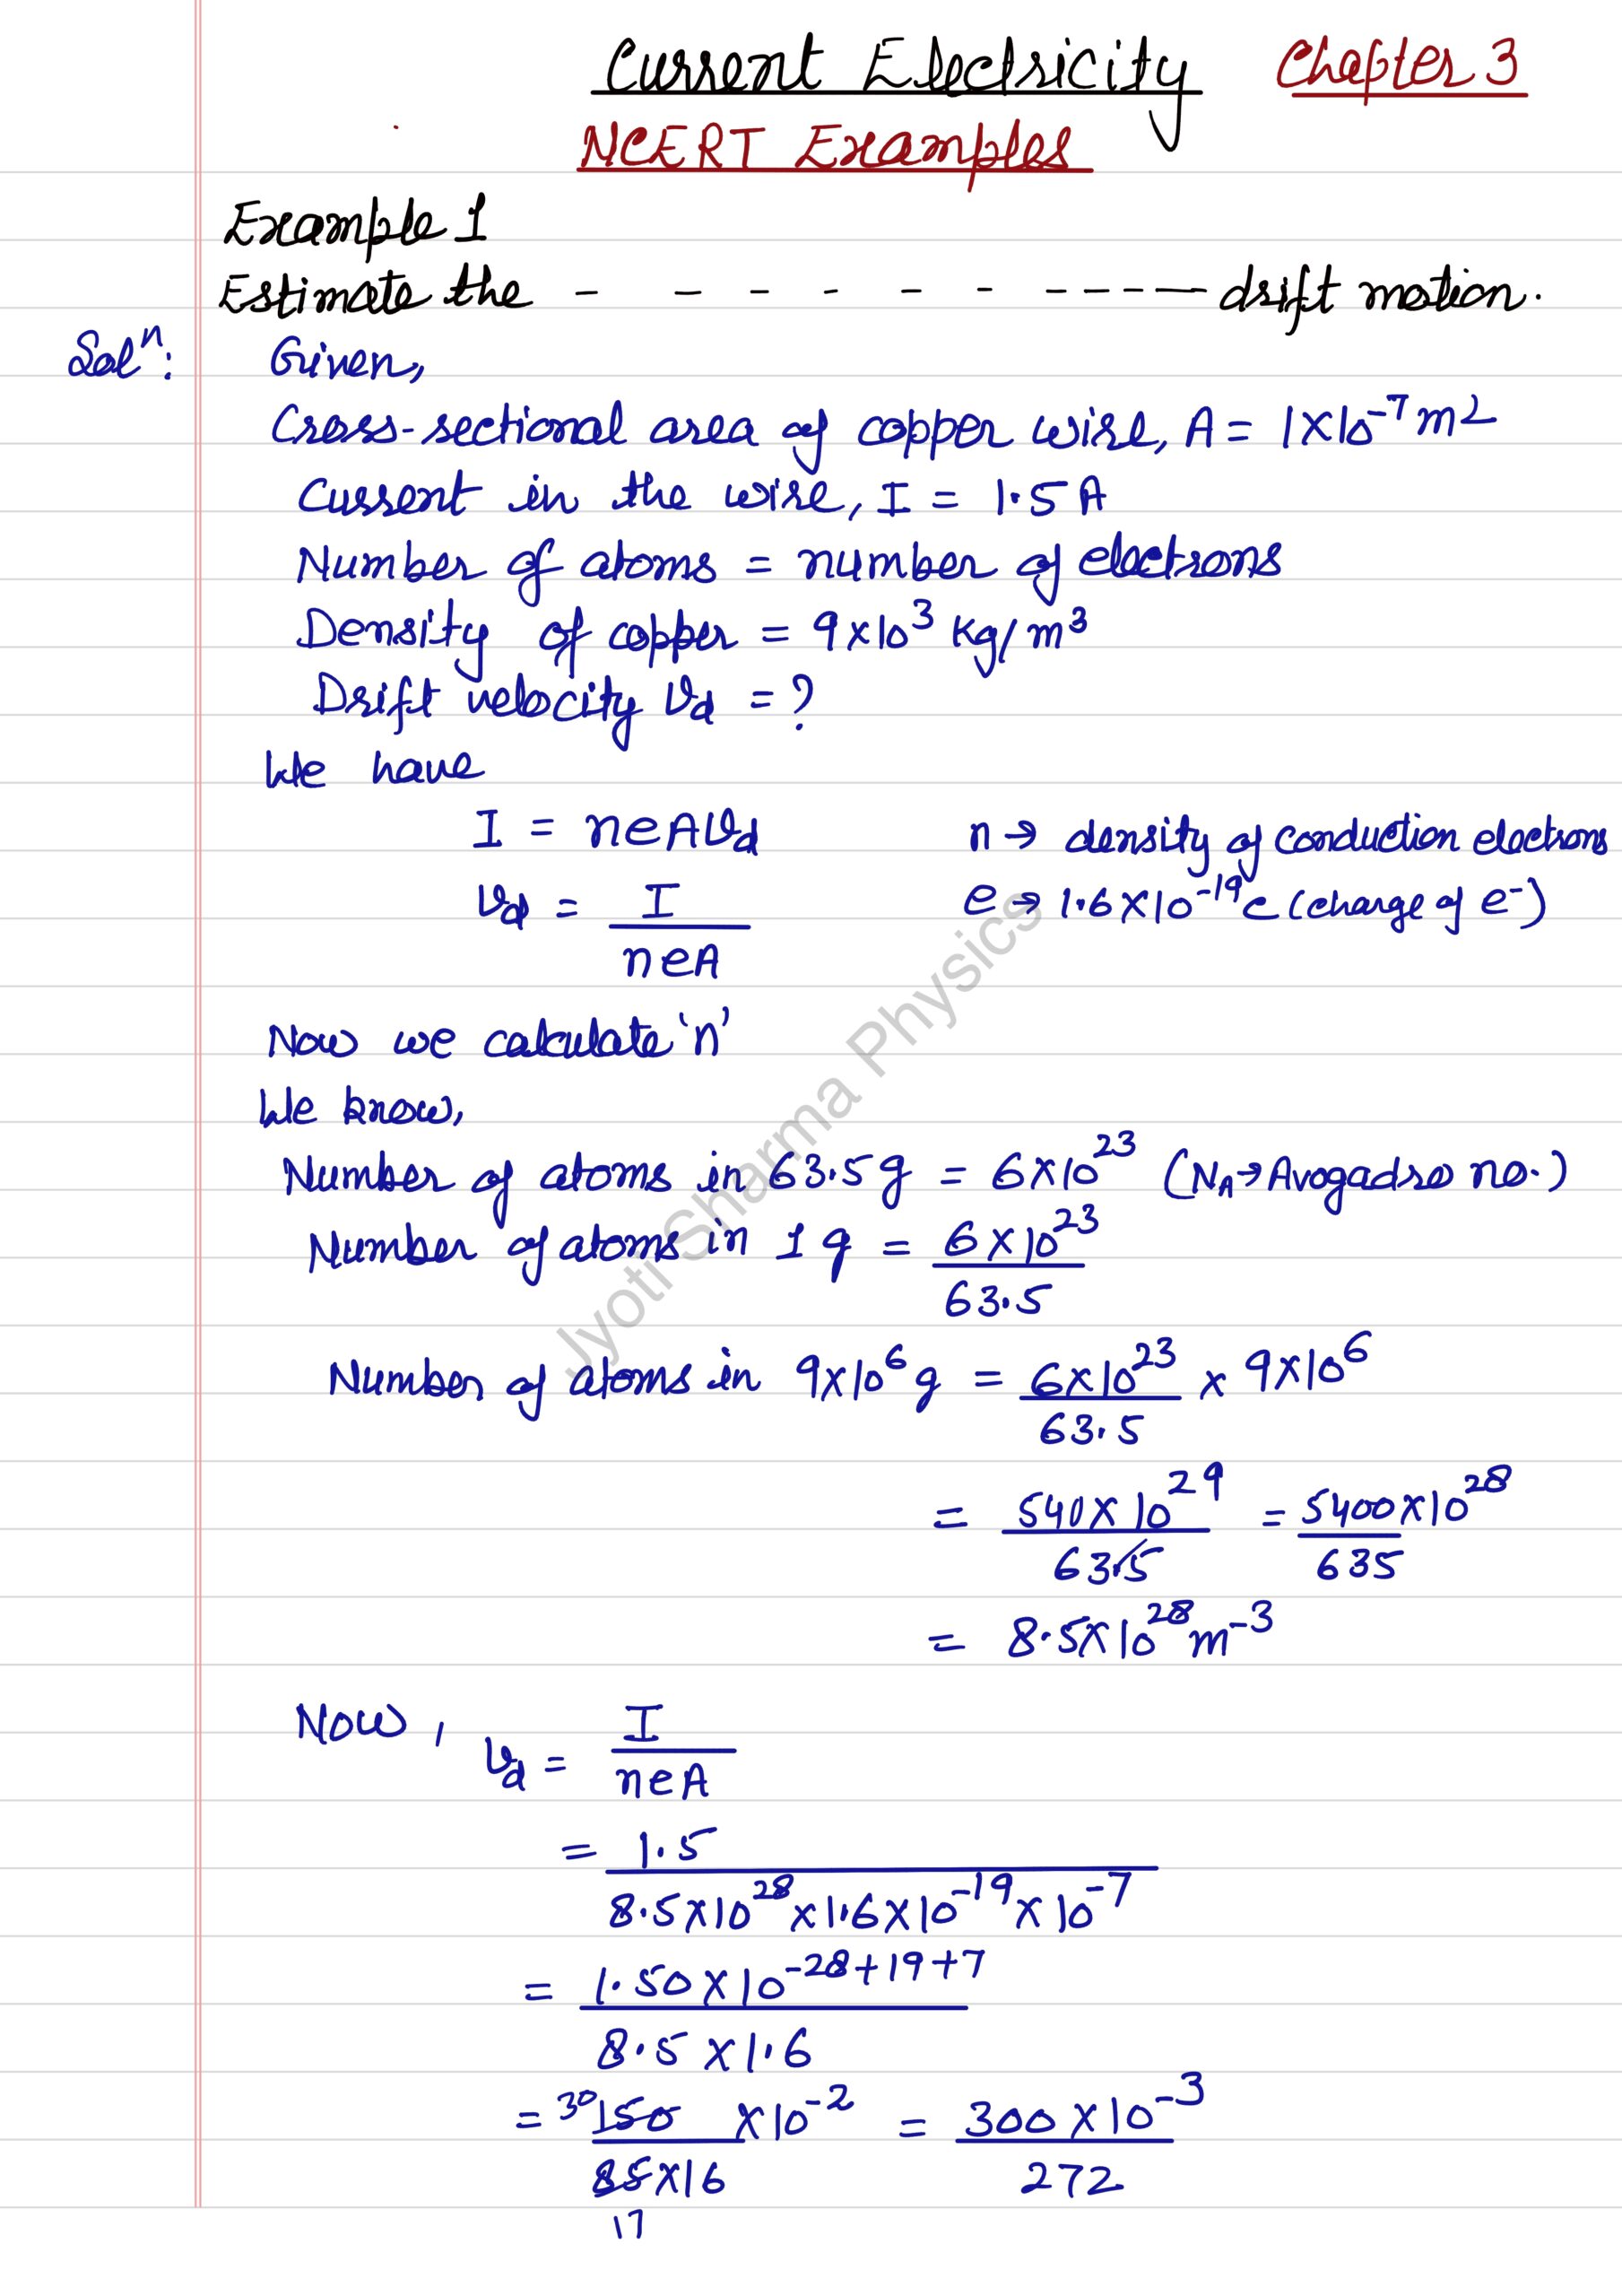 Current Electricity Chapter 3
NCERT Examples
Example 1
Estimate the - - - - - - - - - - - drift motion.
Solⁿ: Given,
Cross-sectional area of copper wire, A = 1×10⁻⁷ m²
Current in the wire, I = 1.5 A
Number of atoms = number of electrons
Density of copper = 9×10³ Kg/m³
Drift velocity Vd = ?
We have
I = neAVd n → density of conduction electrons
Vd = I/neA e → 1.6×10⁻¹⁹C (charge of e⁻)
Now we calculate 'n'
We know,
Number of atoms in 63.5g = 6×10²³ (N_A→Avogadro no.)
Number of atoms in 1g = 6×10²³/63.5
Number of atoms in 9×10⁶g = 6×10²³/63.5 × 9×10⁶
= 540×10²⁹/63.5 = 5400×10²⁸/635
= 8.5×10²⁸m⁻³
Now, Vd = I/neA
= 1.5/8.5×10²⁸×1.6×10⁻¹⁹×10⁻⁷
= 1.50×10⁻²⁸⁺¹⁹⁺⁷/8.5×1.6
= 30 150/85×16 ×10⁻² = 300×10⁻³/272
17
Jyoti Sharma Physics